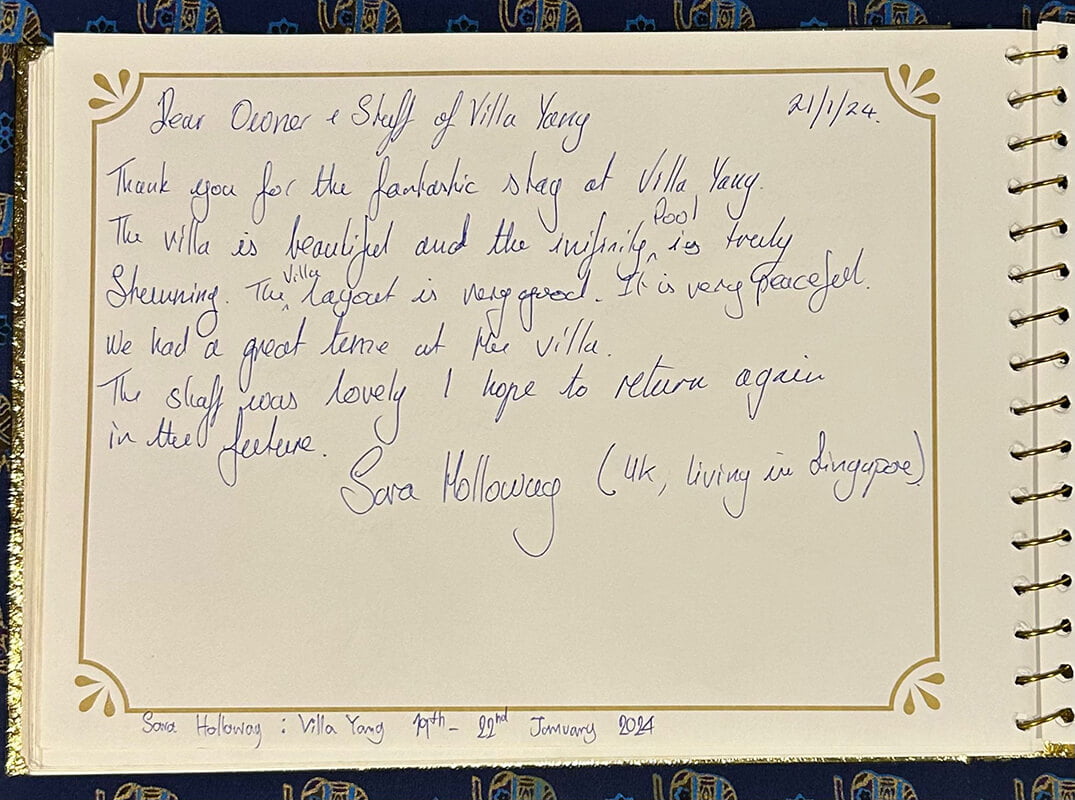 Dear Owner & Staff of Villa Yang
21/1/24.
Thank you for the fantastic stay at Villa Yang.
The villa is beautiful and the inifinity Pool is truly
Stunning. The Villa layout is very good. It is very peaceful.
We had a great time at the villa.
The staff was lovely I hope to return again
in the future.
Sara Holloway (UK, living in Singapore)
Sara Holloway : Villa Yang 19th - 22nd January 2024